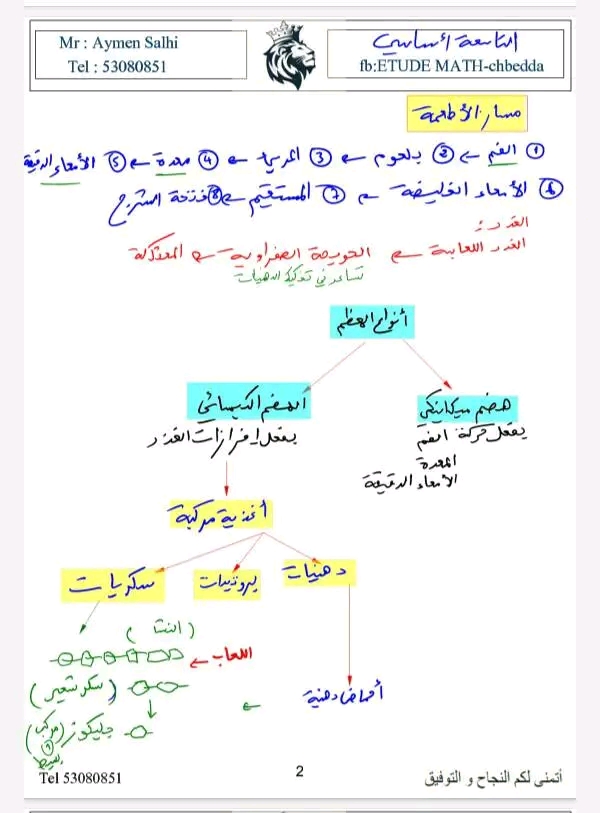 Mr : Aymen Salhi
Tel : 53080851
التاسعة أساسي
fb:ETUDE MATH-chbedda
مسار الأطعمة
① الفم ← ② بلعوم ← ③ المريء ← ④ معدة ← ⑤ الأمعاء الدقيقة
⑥ الأمعاء الغليظة ← ⑦ المستقيم ← ⑧ فتحة الشرج
الغدد:
الغدد اللعابية ← الحويصلة الصفراوية ← المعثكلة
تساعد في تفكيك الدهنيات
أنواع الهضم
هضم ميكانيكي
الهضم الكيميائي
بفعل حركة الفم
المعدة
الأمعاء الدقيقة
بفعل إفرازات الغدد
أغذية مركبة
دهنيات
بروتيدات
سكريات
(النشا)
اللعاب ←
(سكر شعير)
أحماض دهنية
جليكوز (مركب)
بسيط
Tel 53080851
2
أتمنى لكم النجاح و التوفيق